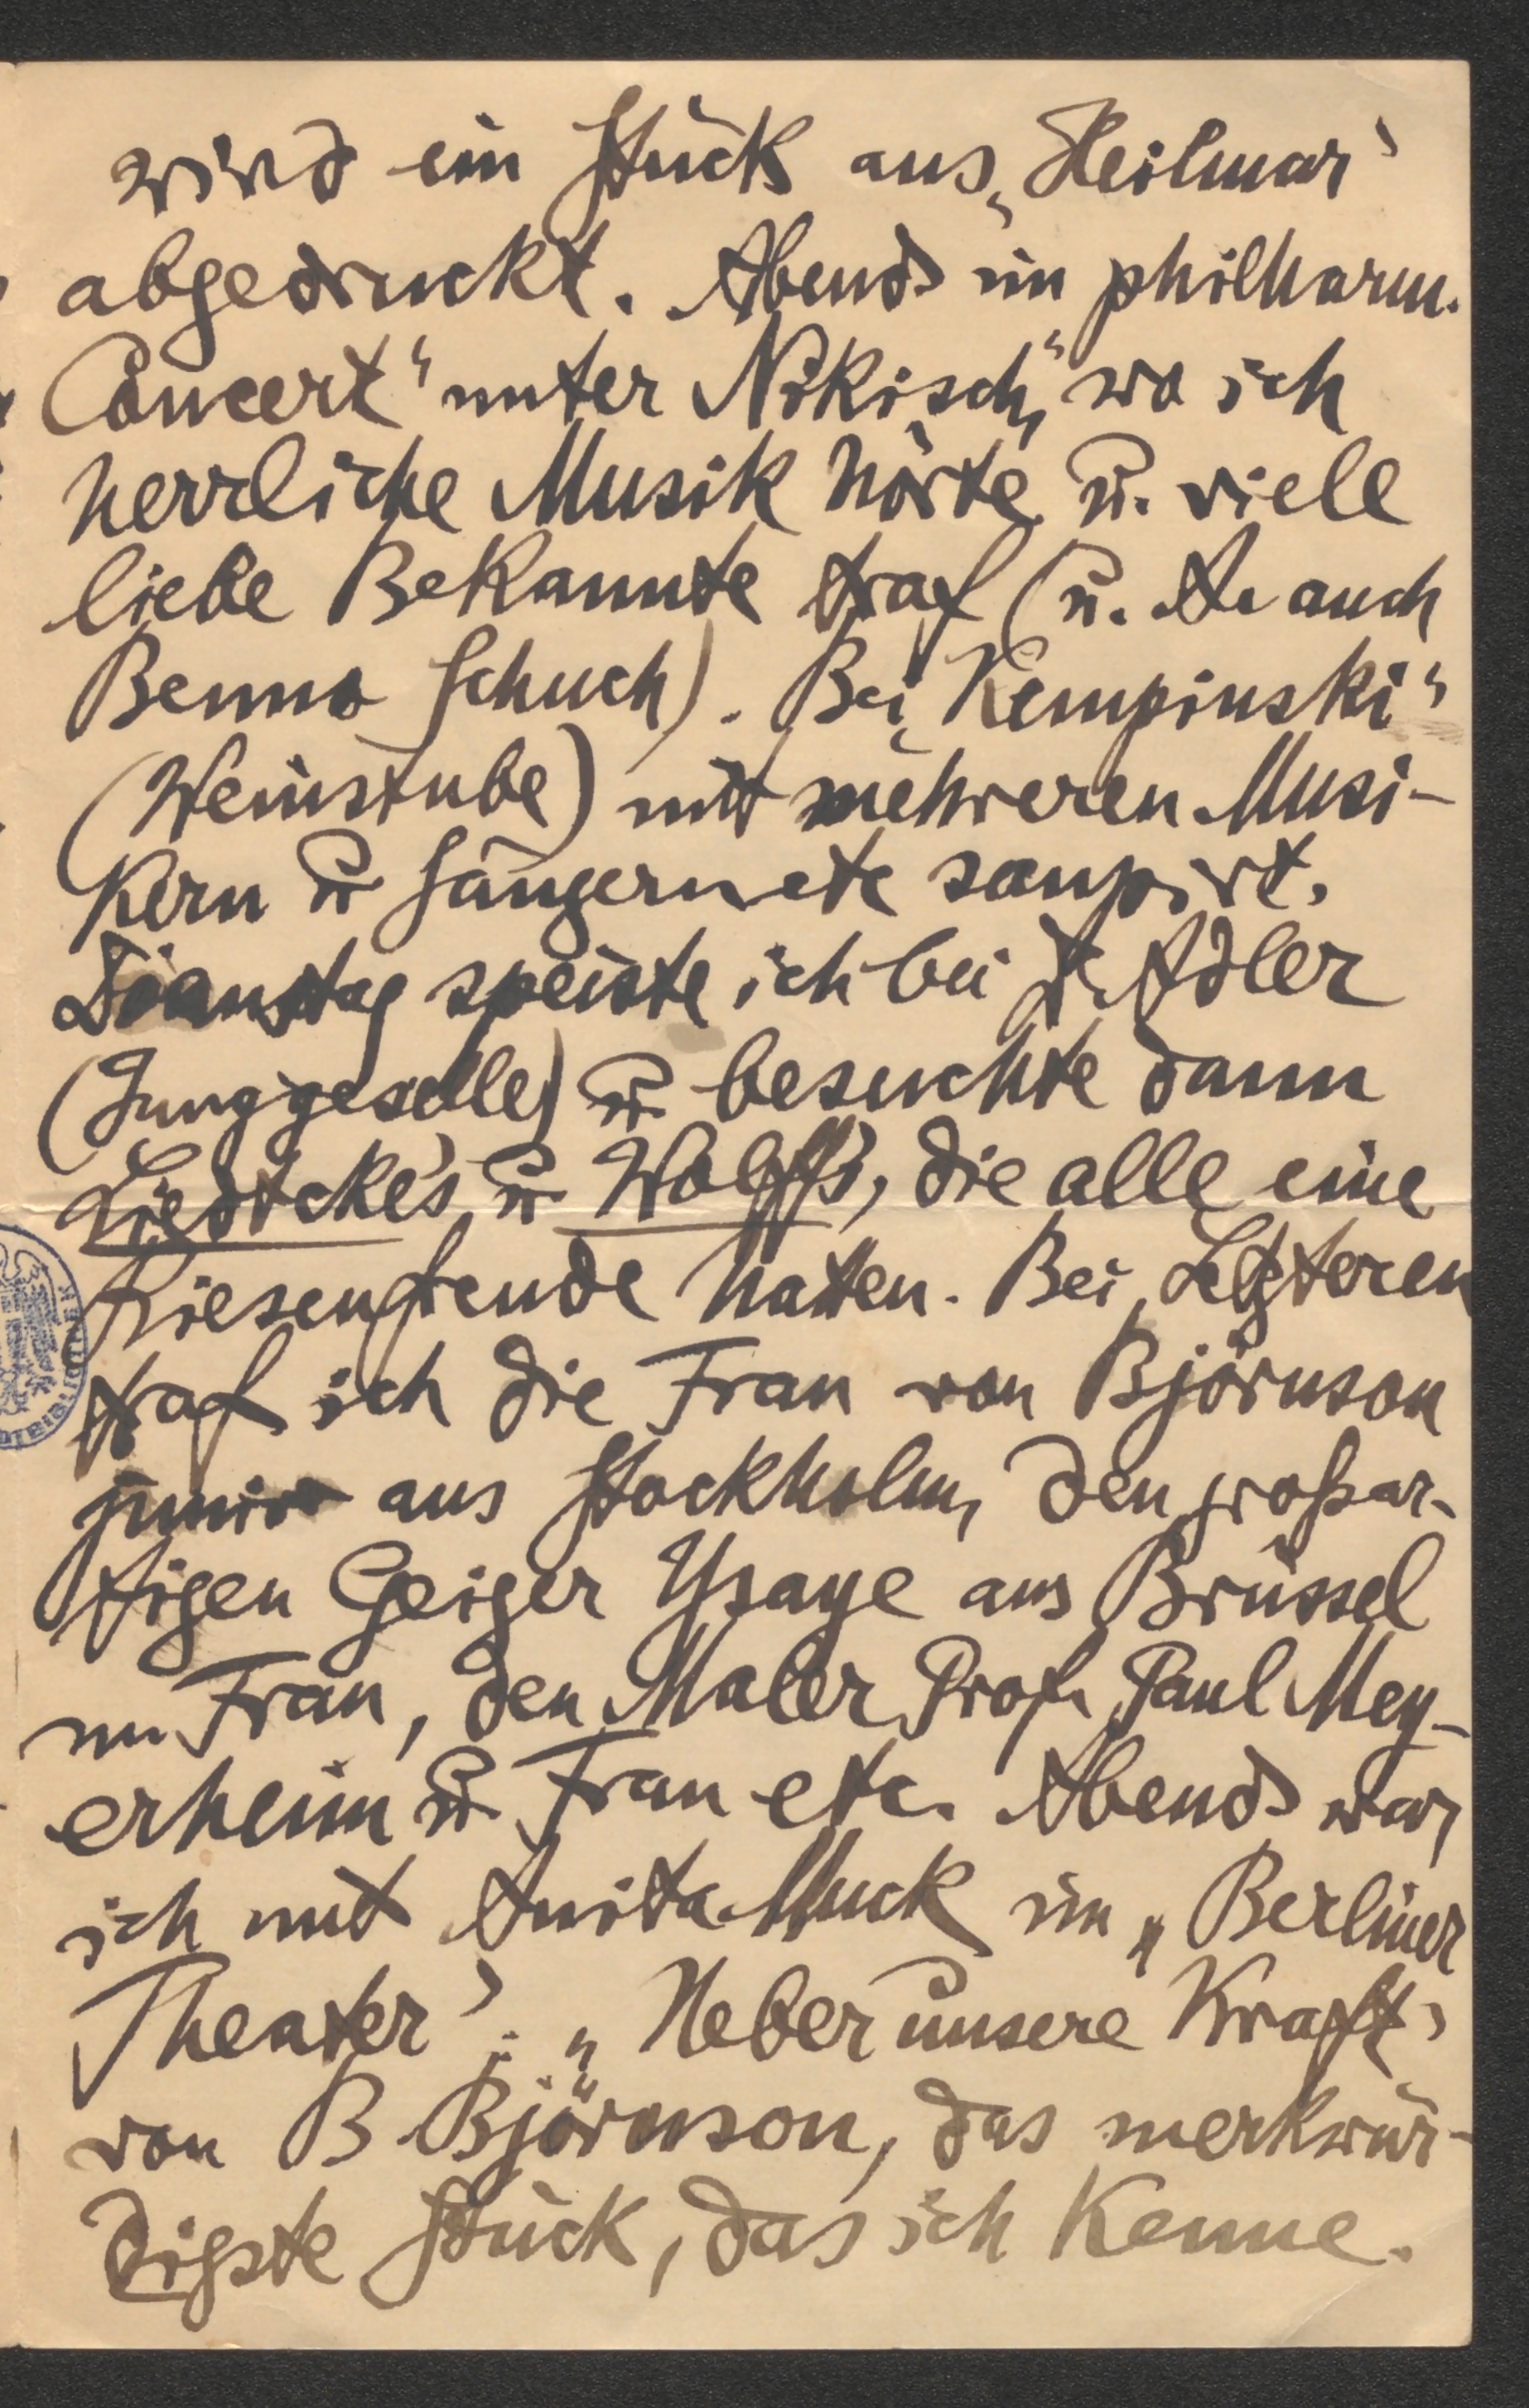 wird ein Stück aus „Heilmar“
abgedruckt. Abends im philharm.
Concert "unter Nikisch," wo ich
herrliche Musik hörte u. viele
liebe Bekannte traf (u. A. auch
Benno Schuch). Bei „Kempinski“
(Weinstube) mit mehreren Musi-
kern u Sängern etc soupirt.
Dienstag speiste ich bei Dr. Adler
(Junggeselle) u besuchte dann
Liedtcke's u Wolff's, die alle eine
Riesenfreude hatten. Bei Letzteren
traf ich die Frau von Björnson
junior aus Stockholm, den großar-
tigen Geiger Ysaye aus Brüssel
m. Frau, den Maler Prof. Paul Mey-
erheim u. Frau etc. Abends war
ich mit Anita Muck im „Berliner
Theater“: „Ueber unsere Kraft“
von B Björnson, das merkwür-
digste Stück, das ich kenne.